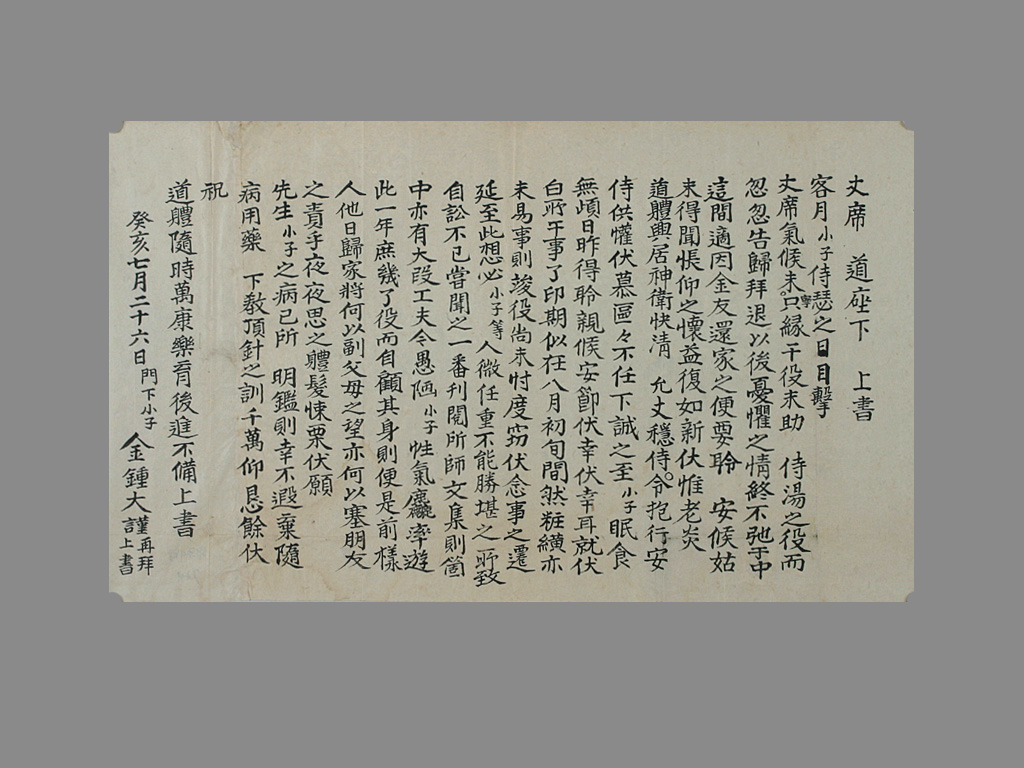 丈席 道座下 上書
客月小子侍瑟之日目擊
丈席氣候未寧只緣干役未助 侍湯之役而
忽忽告歸拜退以後憂懼之情終不弛于中
這間適因金友還家之便要聆 安候姑
未得聞悵仰之懷益復如新伏惟老炎
道體興居神衛快清 允丈穩侍令抱行安
侍供懽伏慕區々不任下誠之至小子眠食
無頉日昨得聆親候安節伏幸伏幸耳就伏
白所干事了印期似在八月初旬間然粧䌙亦
未易事則竣役尚未忖度窃伏念事之遷
延至此想必小子等人微任重不能勝堪之所致
自訟不已嘗聞之一番刊閱所師文集則箇
中亦有大段工夫今愚陋小子性氣麤率遊
此一年庶幾了役而自顧其身則便是前樣
人他日歸家將何以副父母之望亦何以塞朋友
之責乎夜夜思之體髮悚栗伏願
先生小子之病已所 明鑑則幸不遐棄隨
病用藥 下敎頂針之訓千萬仰恳餘伏
祝
道體隨時萬康樂育後進不備上書
癸亥七月二十六日門下小子金鍾大謹再拜上書